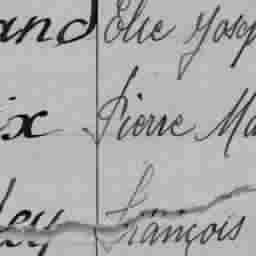 and Elie Josep
ix Pierre Ma
ley François